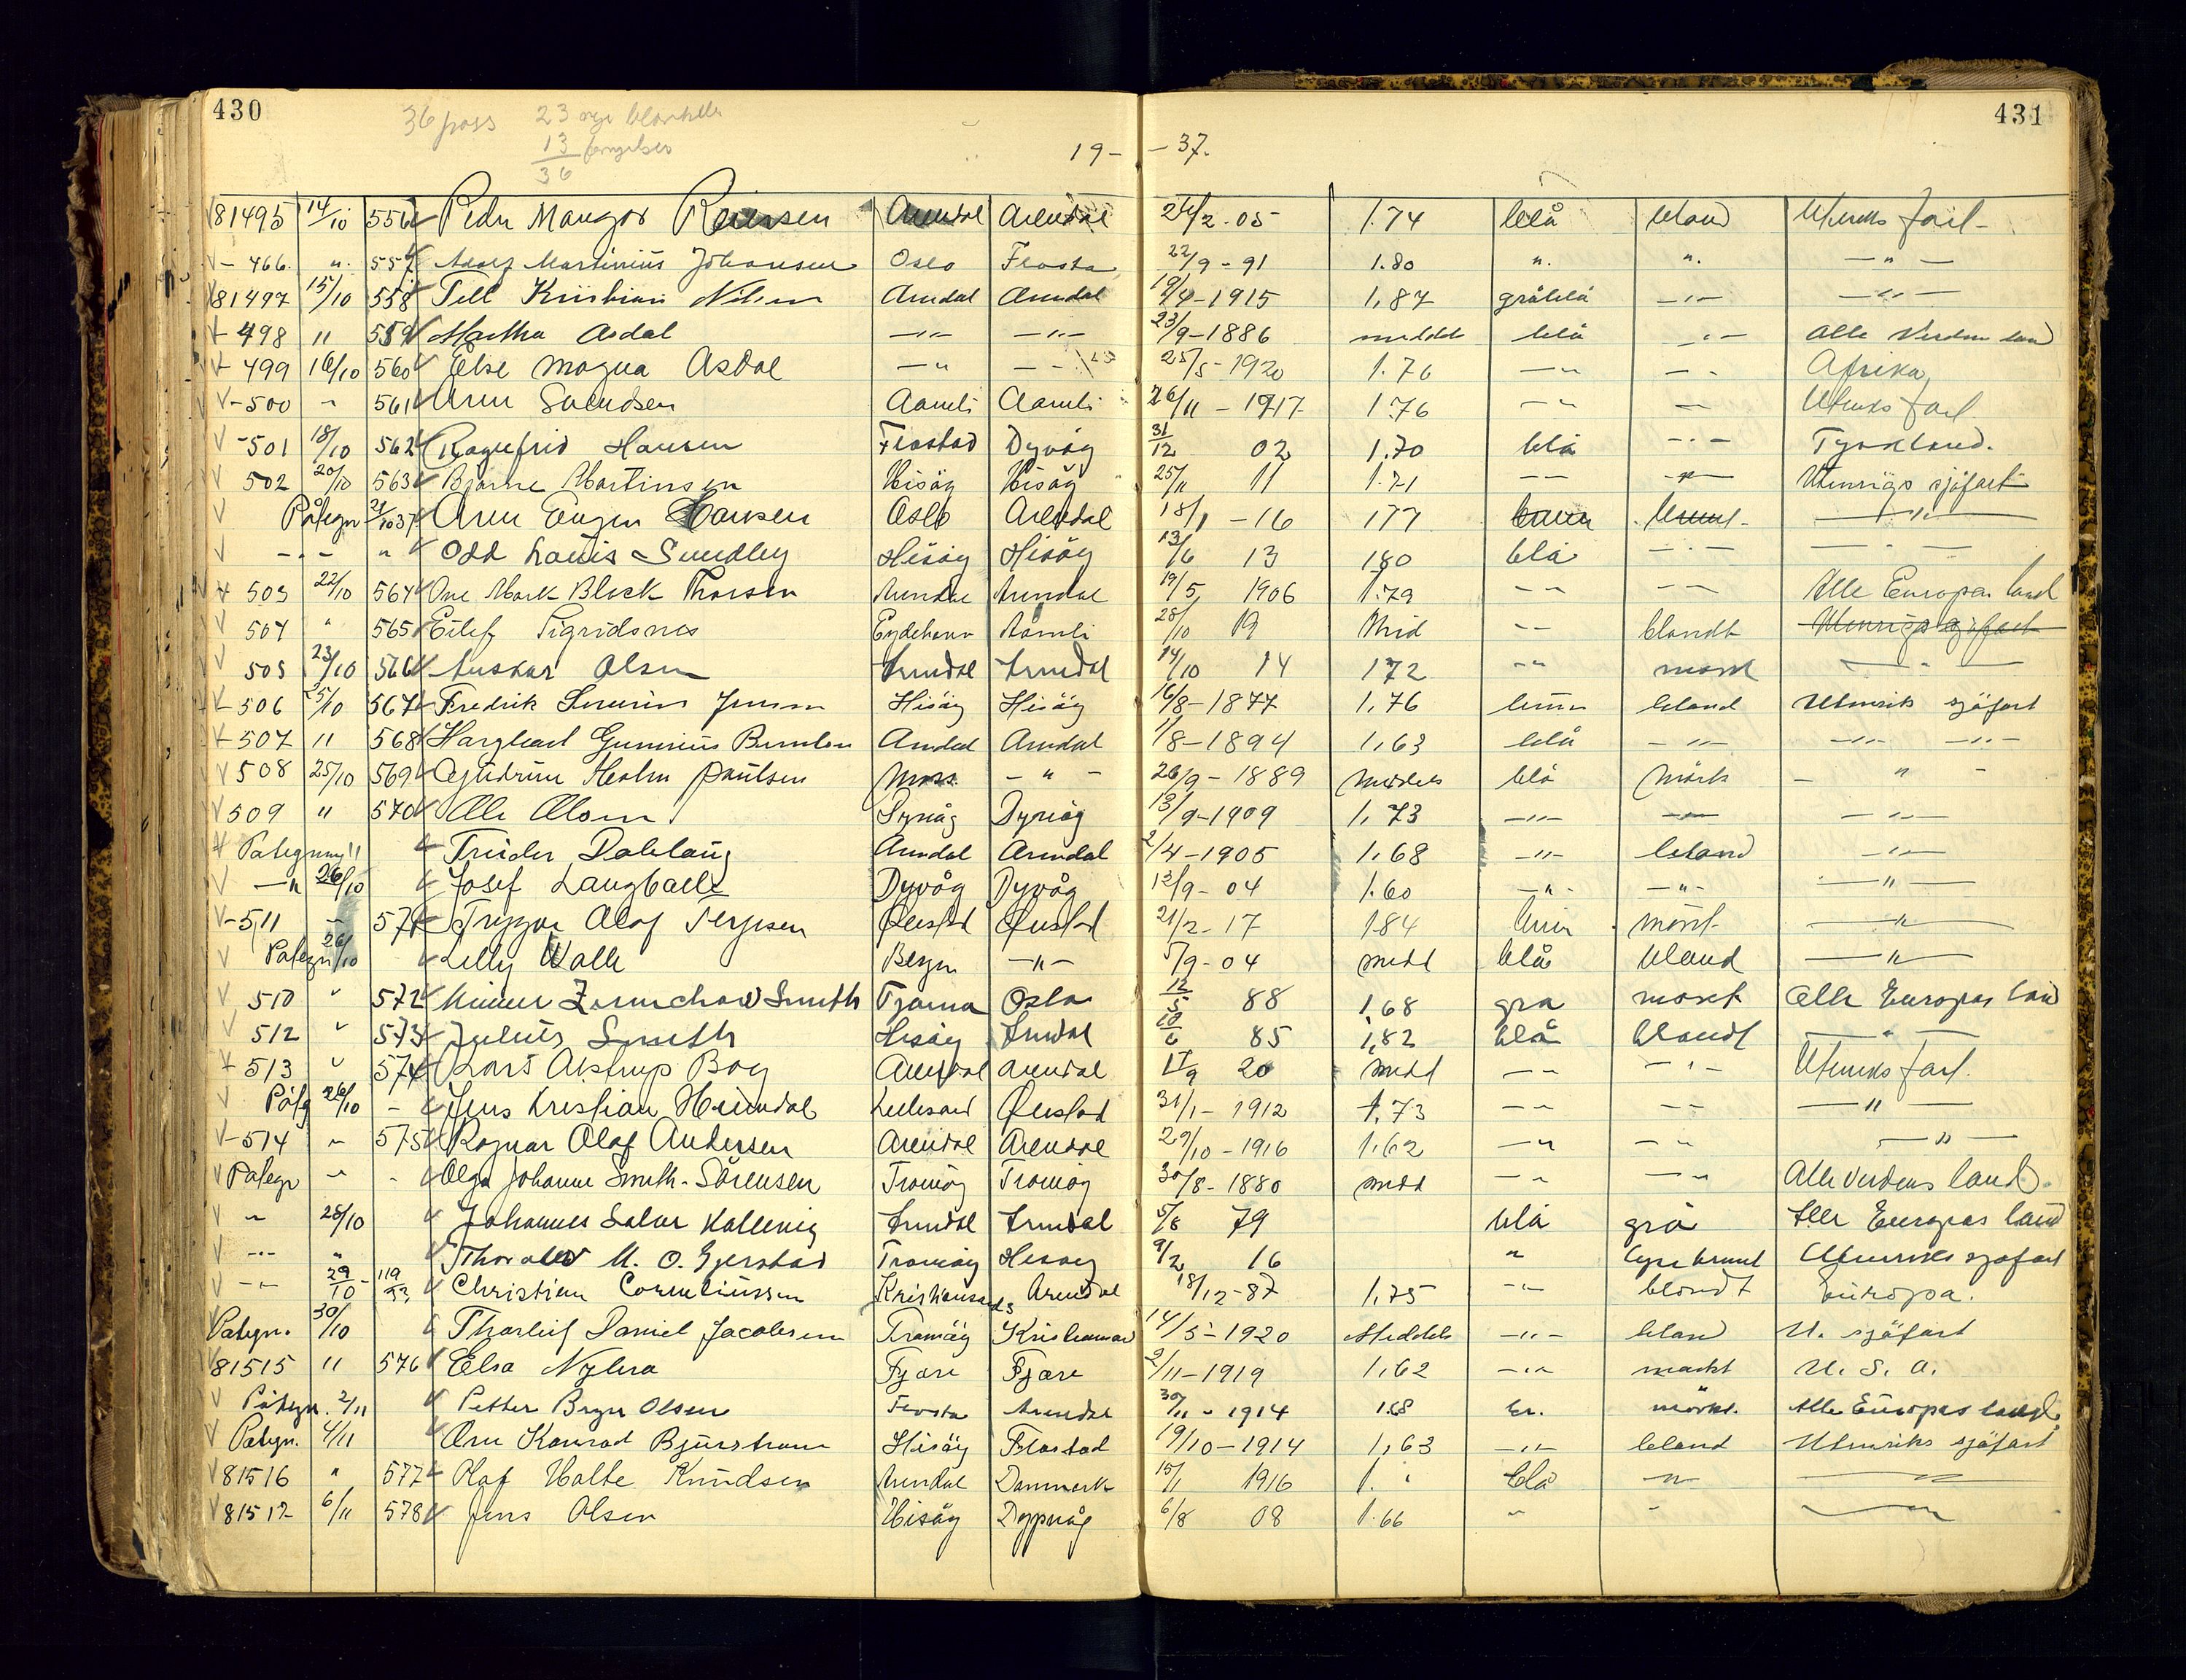 430
431
36 pass 23 nye blanketter
13 fornyelser
36
19- -37.
81495 14/10 556 Peder Mangor Reiersen Arendal Arendal 24/2-05 1.74 blå bland Utenriks fart
-466. " 557 Adolf Martinius Johansen Oslo Flosta 22/9-91 1.80 " " -"-
81497 15/10 558 Tell Kristian Nilsen Arendal Arendal 19/4-1915 1,87 gråblå -"- -"-
498 " 559 Martha Asdal -"- -"- 23/9-1886 middels blå -"- Alle Verdens land
499 16/10 560 Else Magna Asdal -"- -"- 25/5-1920 1.76 -"- -"- Afrika
-500 " 561 Arne Svendsen Aamli Aamli 26/11-1917 1.76 -"- - Utenriks fart
-501 18/10 562 Ragnfrid Hansen Flostad Dyvåg 31/12 02 1.70 blå -"- Tyskland.
502 20/10 563 Bjarne Martinsen Hisöy Hisöy 25/11 11 1.71 -- -"- Utenrigs sjöfart
Påtegn 21/10 37 Arne Eugen Hansen Oslo Arendal 18/1-16 177 brun brunt -"-
-"- " Odd Louis Sundby Hisöy Hisöy 13/6 13 180 blå -"- -"-
503 22/10 564 One Mork Block Thorsen Arendal Arendal 19/5 1906 1.79 -- -- Alle Europas land
504 " 565 Eilef Sigridsnes Eydehavn Aamli 28/10 19 Mid -- blandt Utenrigs sjøfart
505 23/10 566 Anskar Olsen Arendal Arendal 14/10 14 172 -"- mørk -"-
506 25/10 567 Fredrik Severin Jensen Hisöy Hisöy 16/8-1877 1,76 brun bland Utenriks sjöfart
507 " 568 Arendal Arendal 1/8-1894 1,63 blå -"- -"- -"-
508 25/10 569 Holm Paulsen Moss -"- 26/9-1889 middels blå mörk -"-
509 " 570 Olsen Dyvåg Dyvåg 13/9-1909 1,73 -"- -"- -"-
Påtegning " Arendal Arendal 2/4-1905 1,68 -"- bland -"-
-"- 26/10 Josef Langballe Dyvåg Dyvåg 12/9-04 1.60 -"- -"- -"-
-511 - 571 Trygve Olaf Terjesen Øiestad Øiestad 21/2-17 1.84 brun mörk -"-
Påtegn 26/10 Lilly Walle Bergen -"- 5/9-04 midd blå bland -"-
510 " 572 Smith Tjøme Oslo 12/5 88 1,68 grå mørk Alle Europas land
512 " 573 Julius Smith Hisöy Arendal 10/6 85 1,82 blå blandt -"-
513 " 574 Lars Alstrup Boy Arendal Arendal 17/9 20 midd -- -"- Utenriks fart.
Påtg 26/10 - Jens Kristian Heimdal Lillesand Øiestad 31/1-1912 1,73 -- -- -"-
-514 " 575 Ragnar Olaf Andersen Arendal Arendal 29/10-1916 1.62 -"- -"- -"-
Påtegn " - Olga Johanne Smith-Sörensen Tromöy Tromöy 30/8-1880 midd -"- -"- Alle Verdens land.
" 28/10 Johannes Salve Kallevig Arendal Arendal 5/6 79 blå grå Alle Europas land
-"- " Thoralv M. O. Gjerstad Tromöy Hisoy 9/2 16 " lyse brunt Utenriks sjøfart
-"- 29/10 119/33 Christian Corneliussen Kristiansands Arendal 18/12-87 1,75 -"- blondt Europa.
Påtegn. 30/10 Thorleif Daniel Jacobsen Tromöy Kristiansand 14/5-1920 Middels -"- bland U. sjöfart
81515 " 576 Elsa Nyhra Fjære Fjære 2/11-1919 1,62 -"- mørkt U. S. A.
Påtegn. 2/11 Petter Bryn Olsen Flosta Arendal 30/11-1914 168 br. mörkt. Alle Europas land
Påtegn. 4/11 Arne Konrad Bjurstrøm Hisöy Flostad 19/10-1914 1,63 -"- bland Utenriks sjöfart
81516 " 577 Olaf Holte Knudsen Arendal Danmark 15/1 1916 1. " blå -"- -"-
81517 6/11 578 Jens Olsen Hisöy Dypvåg 6/8 08 1.66 " " -"-